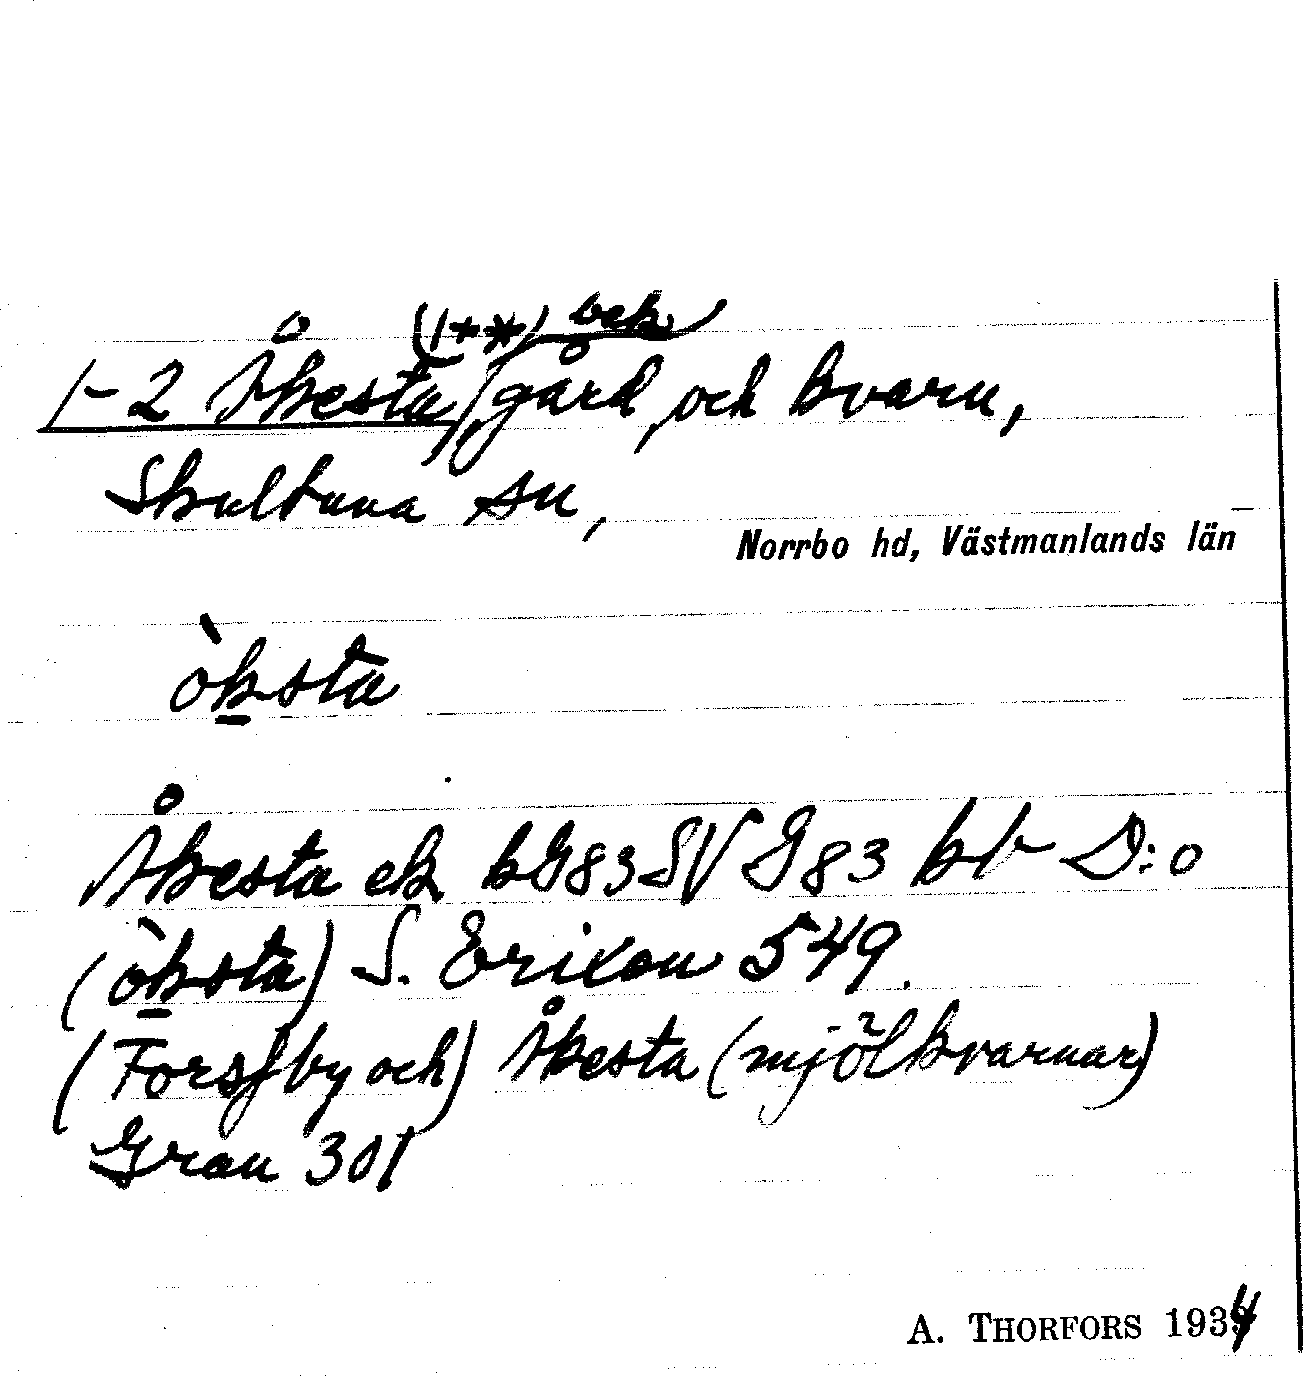 (1+*) bek
1-2 Åkesta, gård, och kvarn,
Skultuna sn,
Norrbo hd, Västmanlands län
òksta
Åkesta ek bG83SV G83 kv D:o
(òksta) S. Erixon 549.
(Forsby och) Åkesta (mjölkvarnar)
Grau 301
A. THORFORS 1934